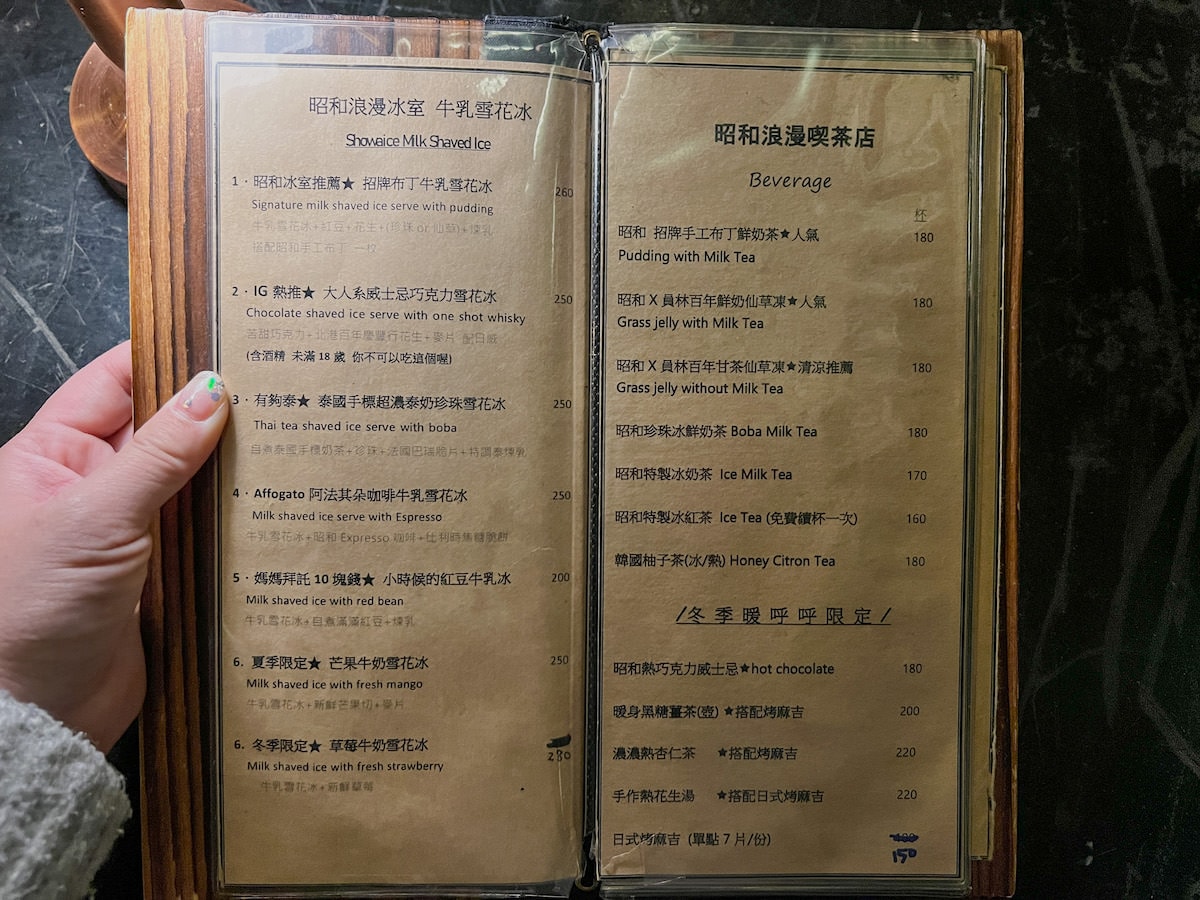 昭和浪漫冰室 牛乳雪花冰
Showaice Milk Shaved Ice
1 · 昭和冰室推薦★ 招牌布丁牛乳雪花冰 260
Signature milk shaved ice serve with pudding
牛乳雪花冰+紅豆+花生+(珍珠 or 仙草)+煉乳
搭配昭和手工布丁 一枚
2 · IG 熱推★ 大人系威士忌巧克力雪花冰 250
Chocolate shaved ice serve with one shot whisky
苦甜巧克力+北港百年慶豐行花生+麥片 配日威
(含酒精 未滿 18 歲 你不可以吃這個喔)
3 · 有夠泰★ 泰國手標超濃泰奶珍珠雪花冰 250
Thai tea shaved ice serve with boba
自煮泰國手標奶茶+珍珠+法國巴瑞脆片+特調泰煉乳
4 · Affogato 阿法其朵咖啡牛乳雪花冰 250
Milk shaved ice serve with Espresso
牛乳雪花冰+昭和 Expresso 咖啡+比利時焦糖脆餅
5 · 媽媽拜託 10 塊錢★ 小時候的紅豆牛乳冰 200
Milk shaved ice with red bean
牛乳雪花冰+自煮滿滿紅豆+煉乳
6. 夏季限定★ 芒果牛奶雪花冰 250
Milk shaved ice with fresh mango
牛乳雪花冰+新鮮芒果切+麥片
6. 冬季限定★ 草莓牛奶雪花冰 280
Milk shaved ice with fresh strawberry
牛乳雪花冰+新鮮草莓
昭和浪漫喫茶店
Beverage
杯
昭和 招牌手工布丁鮮奶茶★人氣 180
Pudding with Milk Tea
昭和 X 員林百年鮮奶仙草凍★人氣 180
Grass jelly with Milk Tea
昭和 X 員林百年甘茶仙草凍★清涼推薦 180
Grass jelly without Milk Tea
昭和珍珠冰鮮奶茶 Boba Milk Tea 180
昭和特製冰奶茶 Ice Milk Tea 170
昭和特製冰紅茶 Ice Tea (免費續杯一次) 160
韓國柚子茶(冰/熱) Honey Citron Tea 180
/冬季暖呼呼限定/
昭和熱巧克力威士忌★hot chocolate 180
暖身黑糖薑茶(壺) ★搭配烤麻吉 200
濃濃熱杏仁茶 ★搭配烤麻吉 220
手作熱花生湯 ★搭配日式烤麻吉 220
日式烤麻吉 (單點 7 片/份) 150